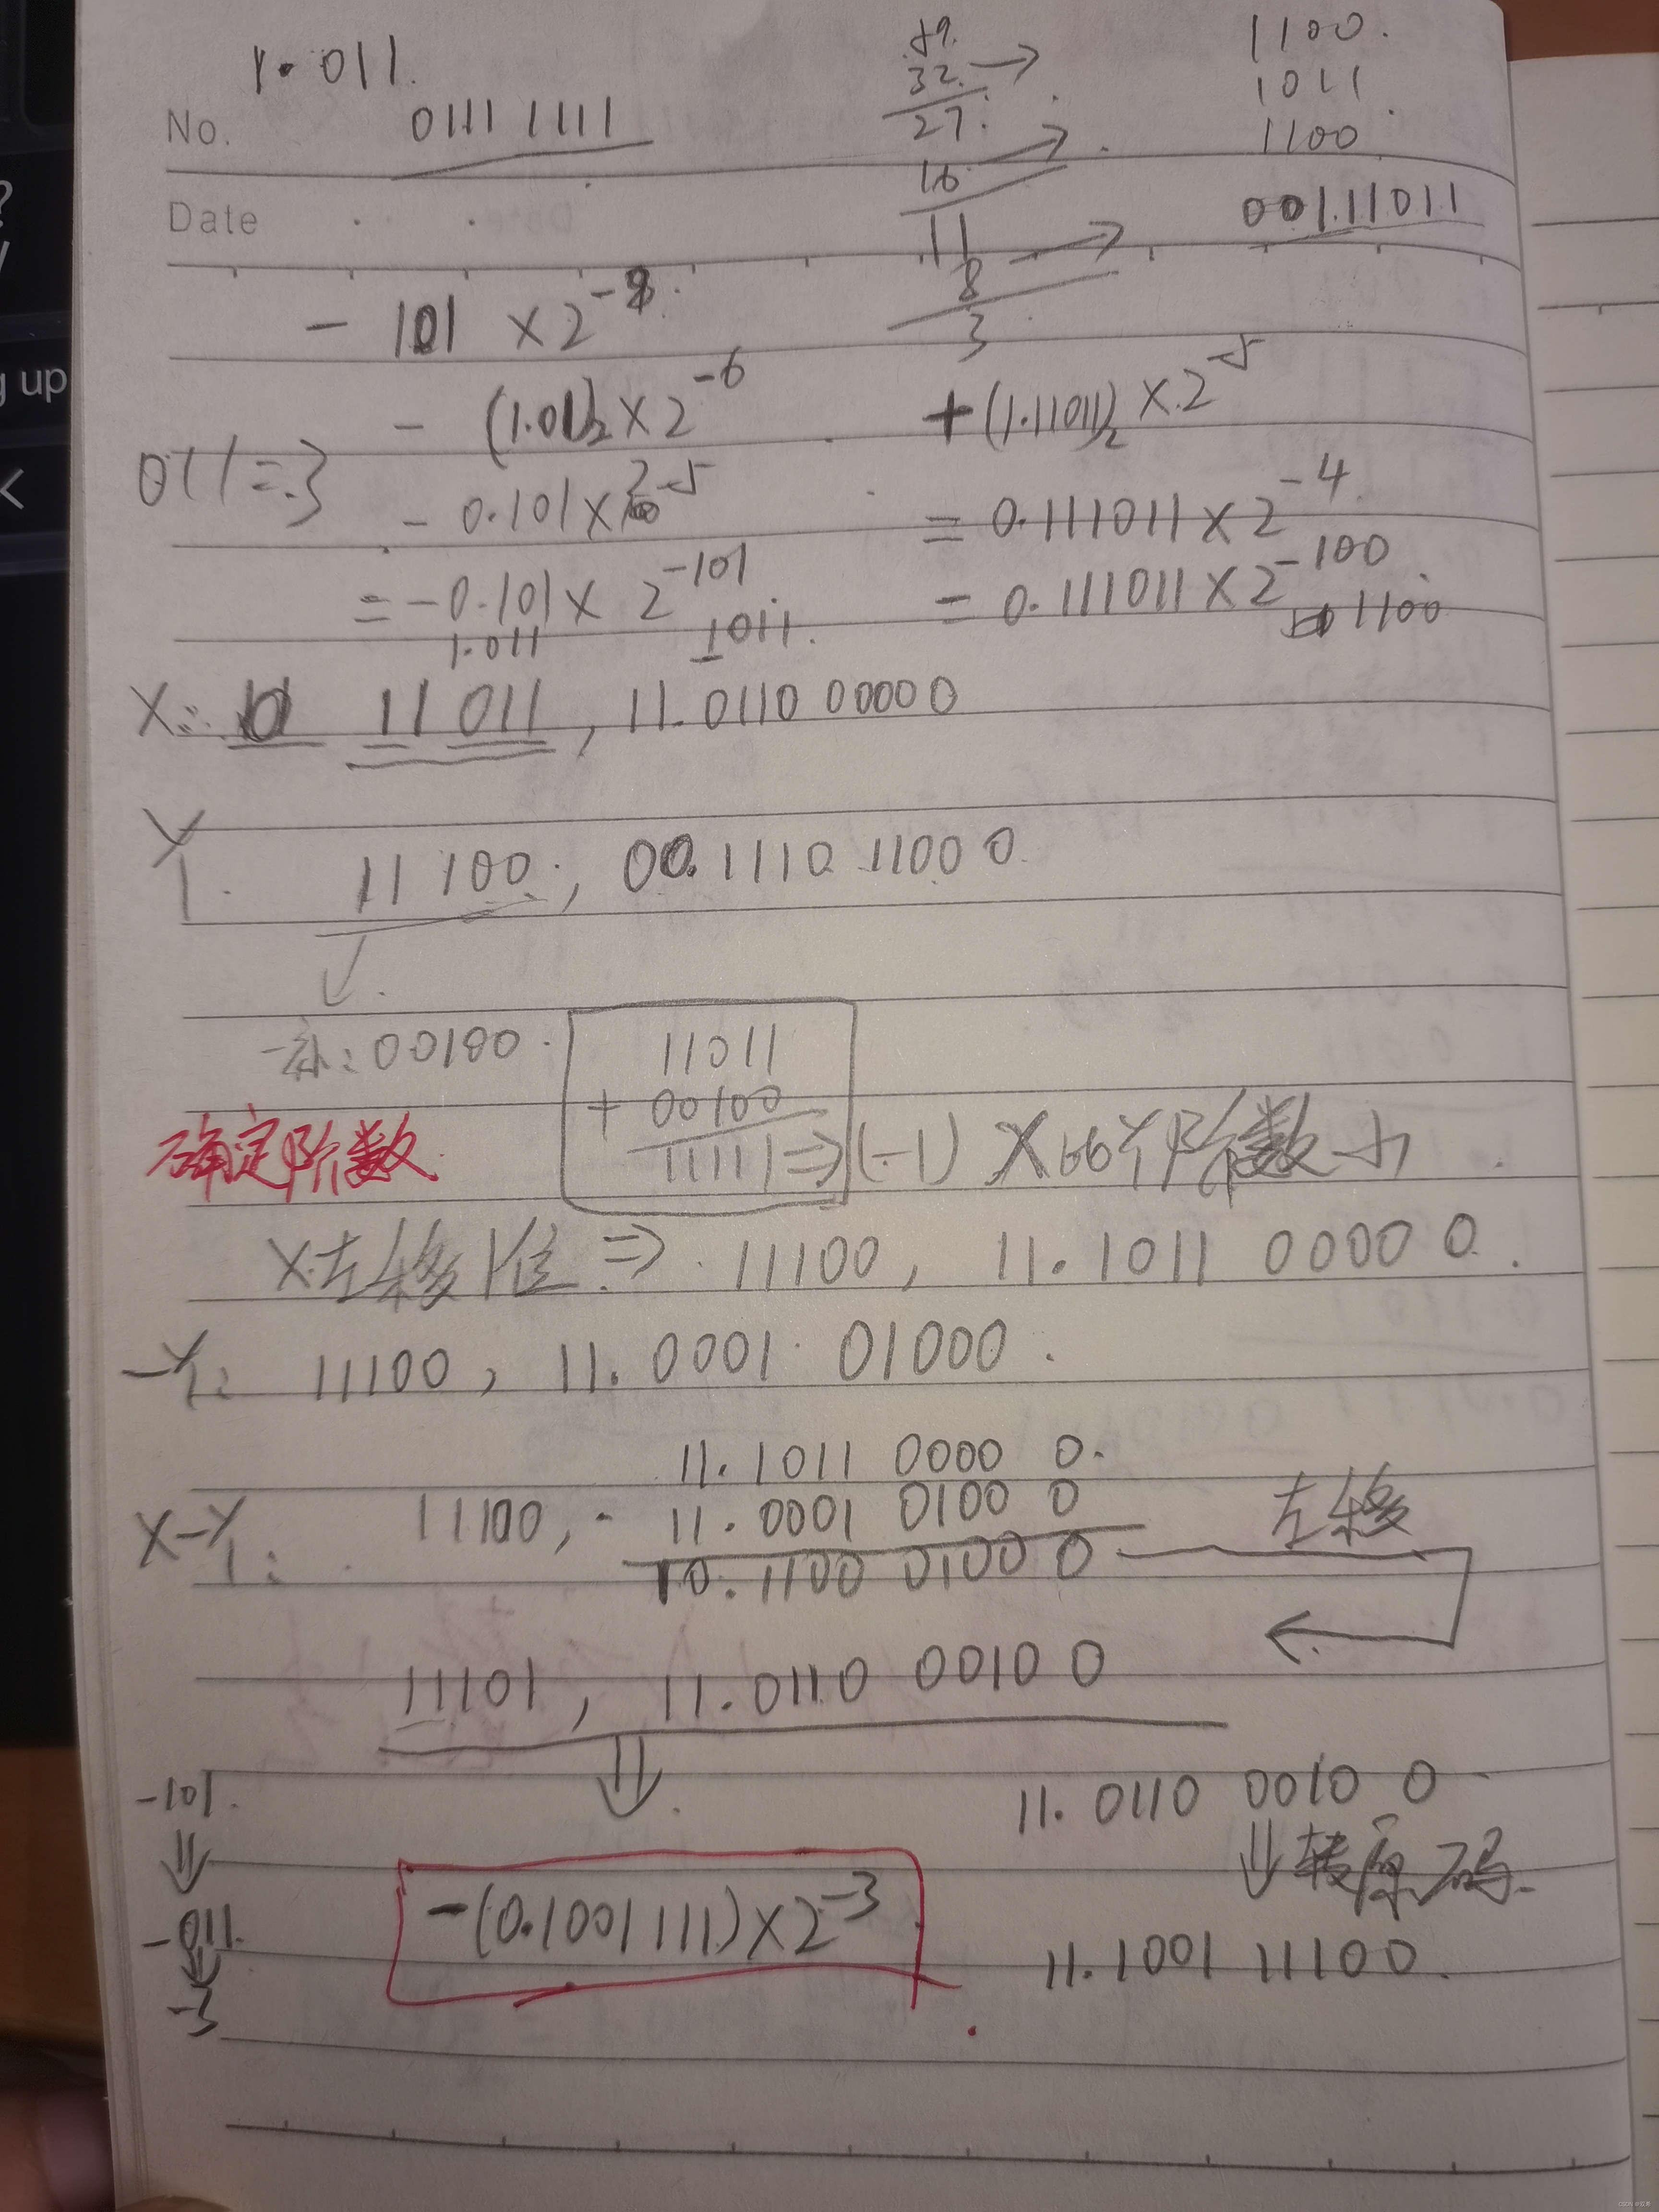 1.011.
59.
32. →
1100.
No. 0111 1111
27.
1011
16 →
1100
Date
11
8 →
001.11011
3
- 101 × 2^-8
- (1.01)₂ × 2^-6
+ (1.11011)₂ × 2^-5
011 = 3
- 0.101 × 2^-5
= 0.111011 × 2^-4
= -0.101 × 2^-101
= 0.111011 × 2^-100
1.011 1011.
1100
X: 11 011, 11.0110 00000
Y 11 100, 00.1110 1100 0
g up
-补: 00100
11011
+ 00100
11111 ⇒ (-1) X比Y阶数小
确定阶数
X左移1位 ⇒ 11100, 11.1011 0000 0.
-Y: 11100, 11.0001 01000.
11.1011 0000 0.
X-Y: 11100, 11.0001 0100 0
10.1100 0100 0
左移
11101, 11.0110 0010 0
⇓
-101.
11.0110 0010 0
⇓
⇓ 转原码
-011.
-(0.1001111) × 2^-3
11.1001 11100.
-3